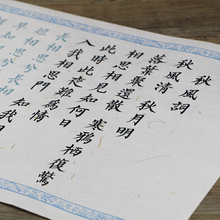 秋風詞
秋風清 秋月明
落葉聚還散 寒鴉棲復驚
相思相見知何日
此時此夜難為情
入我相思門 知我
長相思兮長相
相思兮